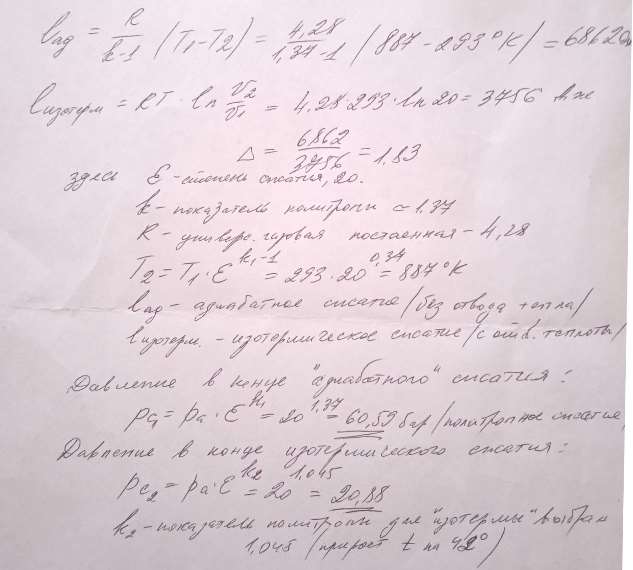 lад = R/(k-1) (T1-T2) = 4,28/(1,37-1) (887-293°K) = 6862 дж
lизотерм = RT · ln v2/v1 = 4.28·293·ln 20 = 3756 дж
Δ = 6862/3756 = 1,83
здесь ε - степень сжатия, 20.
k - показатель политропы ≃ 1.37
R - универс. газовая постоянная - 4,28
T2 = T1 · ε^(k1-1) = 293·20^0,37 = 887°K
lад - адиабатное сжатие /без отвода тепла/
lизотерм. - изотермическое сжатие /с отв. теплоты/
Давление в конце "адиабатного" сжатия:
pc1 = pa · ε^k1 = 20^1,37 = 60,59 бар /политропное сжатие,
Давление в конце изотермического сжатия:
pc2 = pa·ε^k2 = 20^1,045 = 20,88
k2 - показатель политропы для "изотермы" выбран
1,045 (прирост t на 42°)